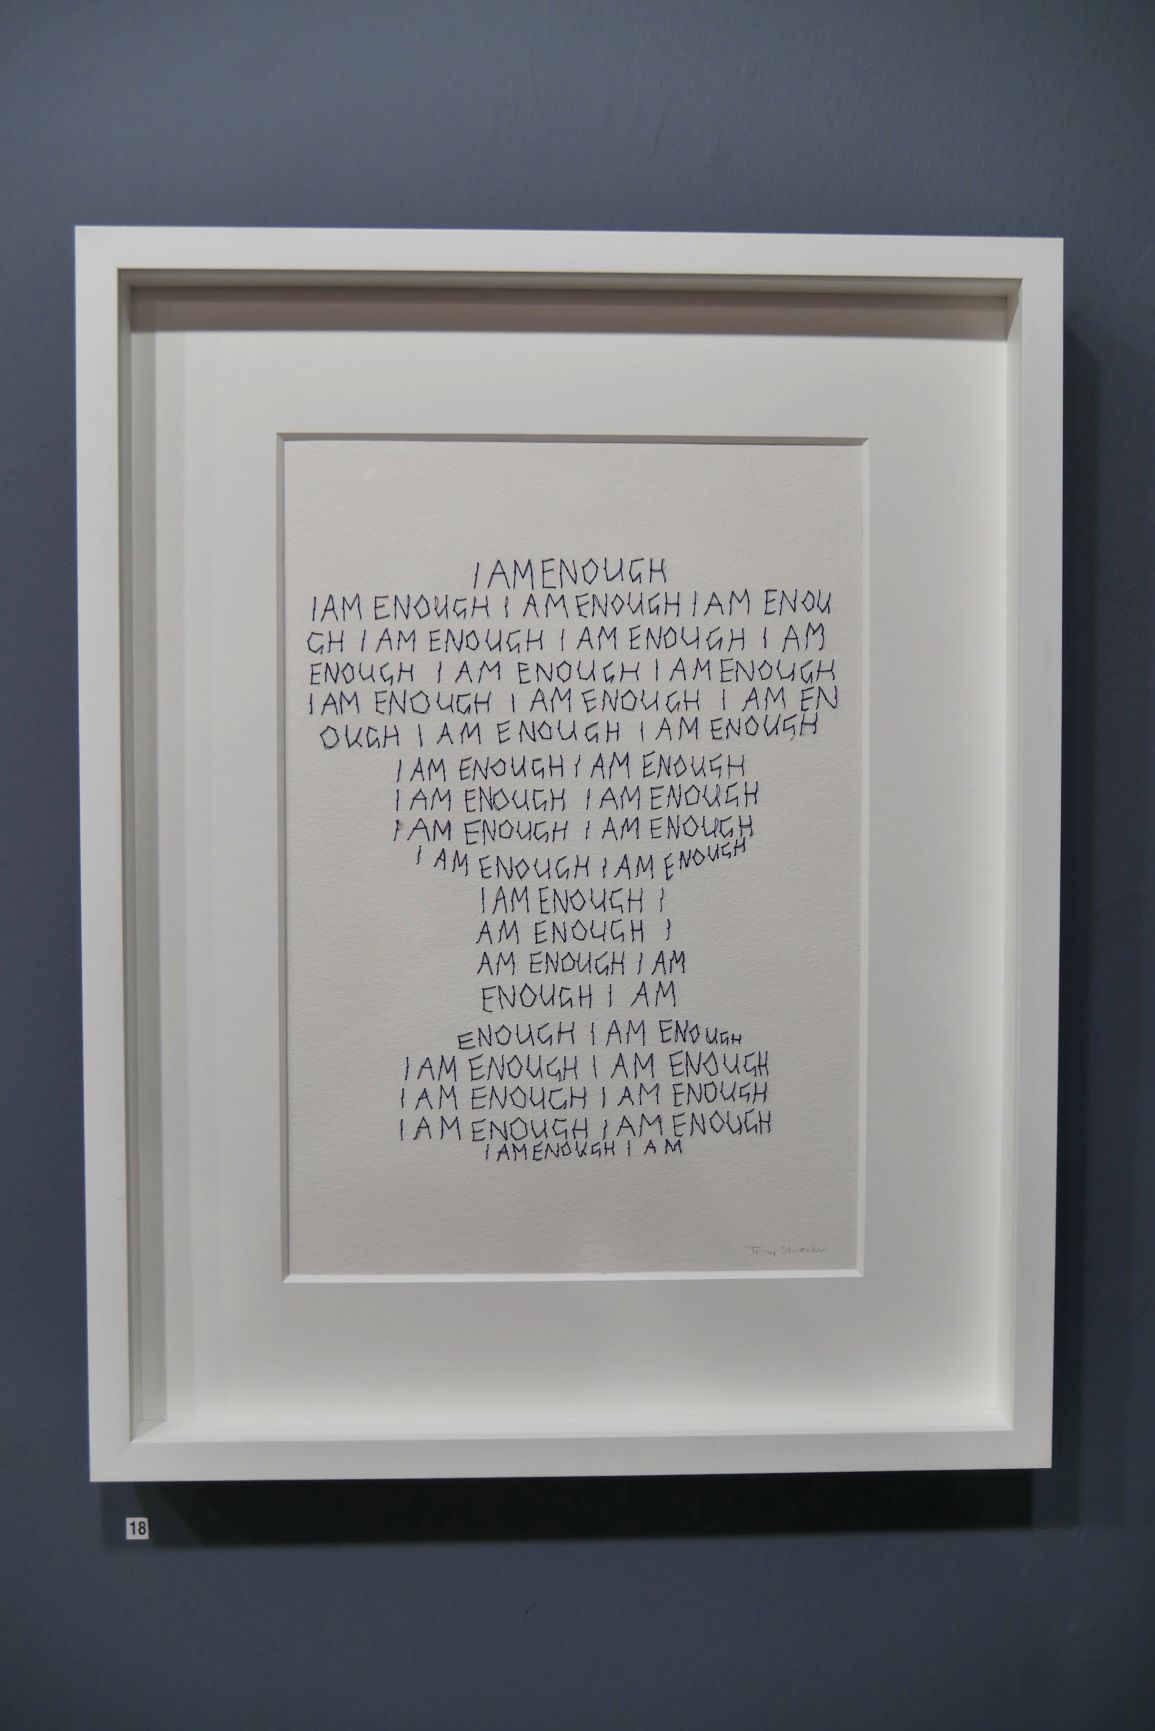 I AM ENOUGH
I AM ENOUGH I AM ENOUGH I AM ENOU
GH I AM ENOUGH I AM ENOUGH I AM
ENOUGH I AM ENOUGH I AM ENOUGH
I AM ENOUGH I AM ENOUGH I AM EN
OUGH I AM ENOUGH I AM ENOUGH
I AM ENOUGH I AM ENOUGH
I AM ENOUGH I AM ENOUGH
I AM ENOUGH I AM ENOUGH
I AM ENOUGH I AM ENOUGH
I AM ENOUGH I
AM ENOUGH I
AM ENOUGH I AM
ENOUGH I AM
ENOUGH I AM ENOUGH
I AM ENOUGH I AM ENOUGH
I AM ENOUGH I AM ENOUGH
I AM ENOUGH I AM ENOUGH
I AM ENOUGH I AM
18